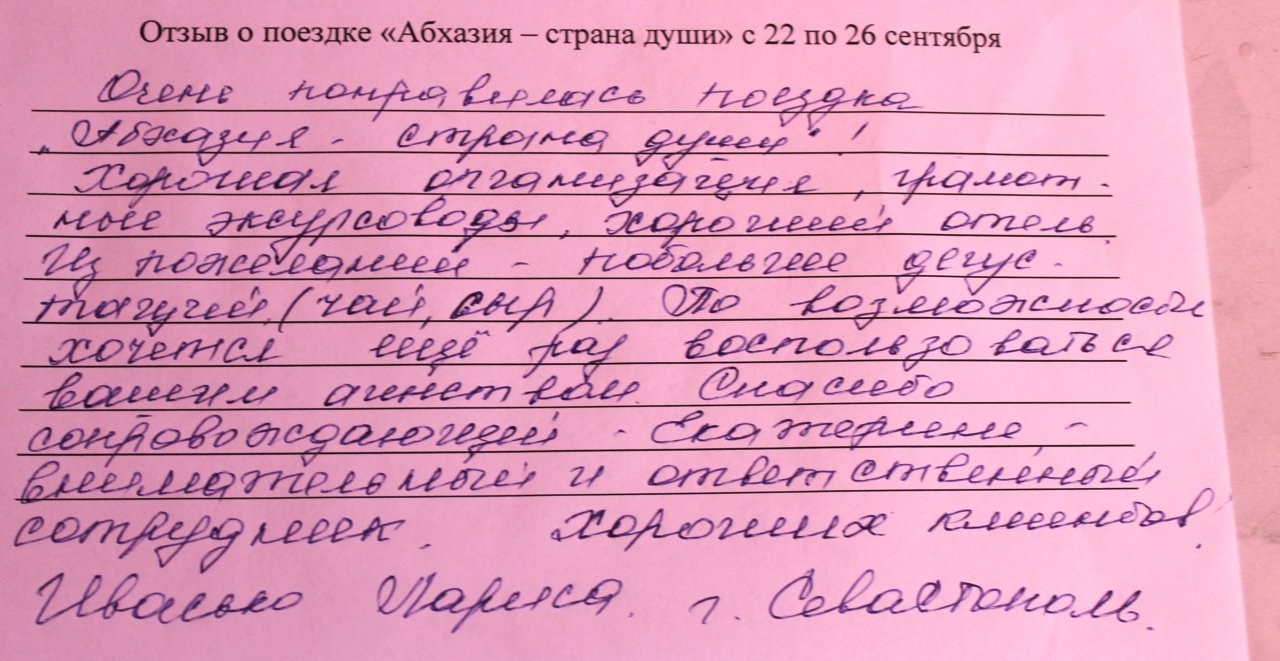 Отзыв о поездке «Абхазия – страна души» с 22 по 26 сентября
Очень понравилась поездка
„Абхазия - страна души"!
Хорошая организация, грамот-
ные эксурсоводы, хороший отель.
Из пожеланий - побольше дегус-
таций (чай, сыр). По возможности
хочется ещё раз воспользоваться
вашим агенством. Спасибо
сопровождающей - Екатерине -
внимательный и ответственный
сотрудник. Хороших клиентов!
Ивасько Лариса. г. Севастополь.